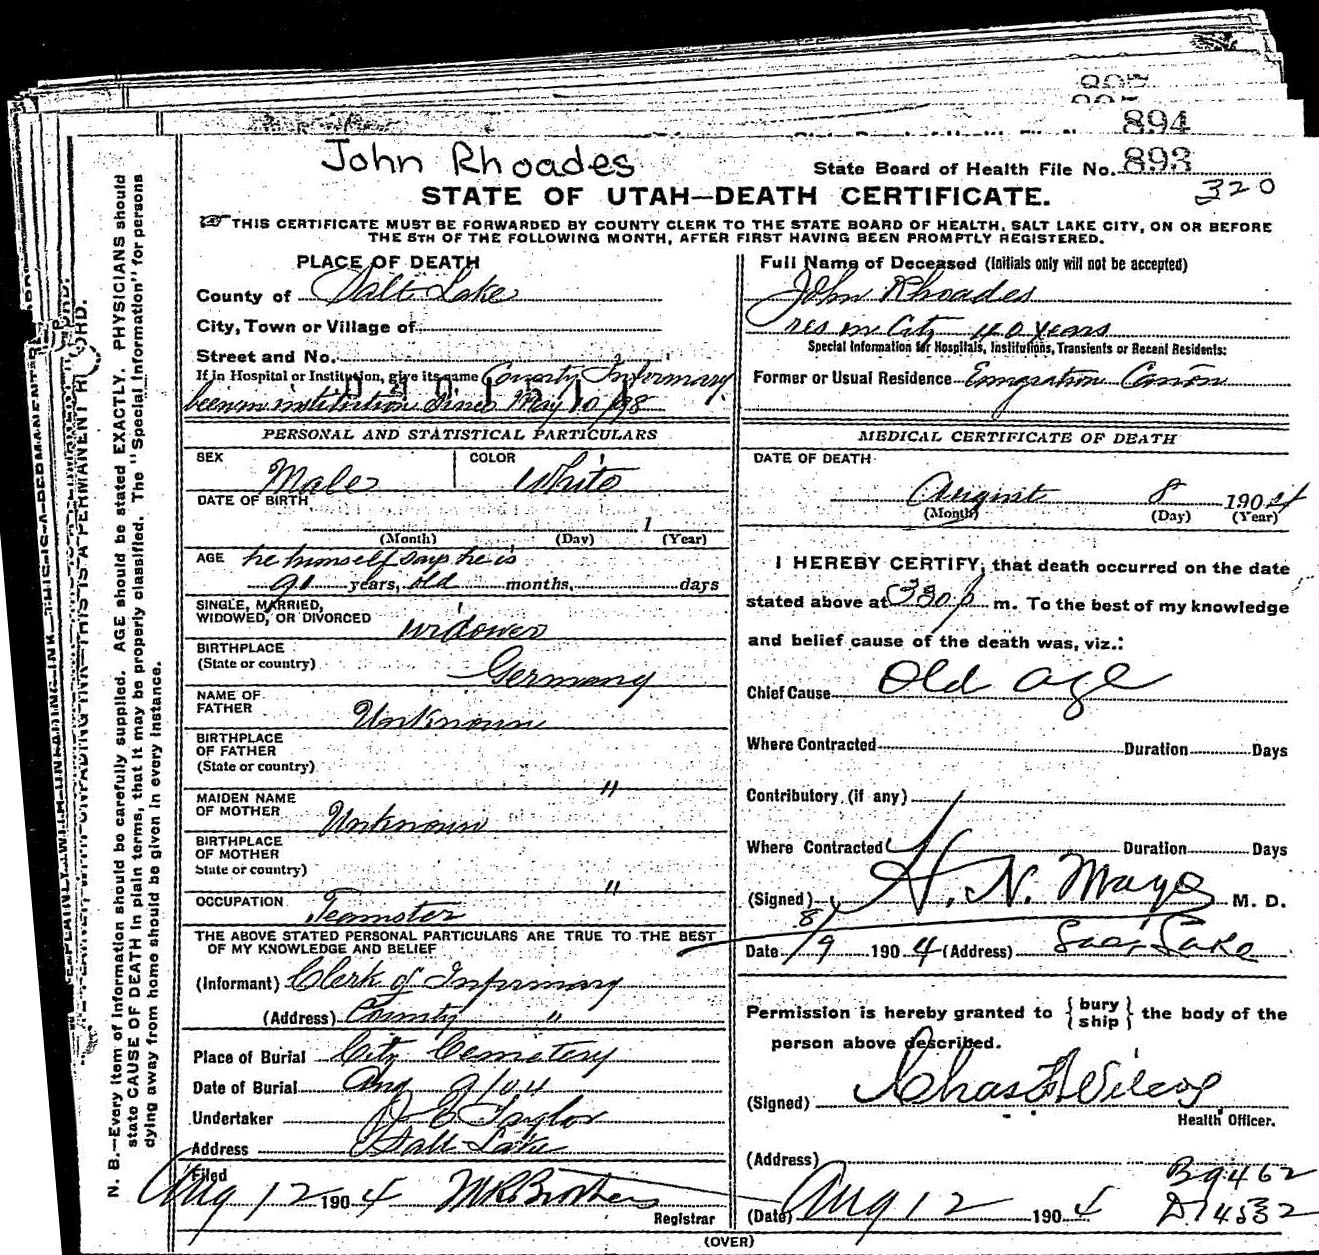 897
895
894
John Rhoades
State Board of Health File No. 893
320
STATE OF UTAH—DEATH CERTIFICATE.
THIS CERTIFICATE MUST BE FORWARDED BY COUNTY CLERK TO THE STATE BOARD OF HEALTH, SALT LAKE CITY, ON OR BEFORE
THE 5TH OF THE FOLLOWING MONTH, AFTER FIRST HAVING BEEN PROMPTLY REGISTERED.
PLACE OF DEATH
County of Salt Lake
City, Town or Village of
Street and No.
If in Hospital or Institution, give its name County Infirmary
been in institution since May 10/98
PERSONAL AND STATISTICAL PARTICULARS
SEX Male COLOR White
DATE OF BIRTH
1
(Month) (Day) (Year)
AGE he himself says he is
91 years, old months, days
SINGLE, MARRIED,
WIDOWED, OR DIVORCED widower
BIRTHPLACE
(State or country) Germany
NAME OF
FATHER Unknown
BIRTHPLACE
OF FATHER
(State or country) "
MAIDEN NAME
OF MOTHER Unknown
BIRTHPLACE
OF MOTHER
State or country) "
OCCUPATION Teamster
THE ABOVE STATED PERSONAL PARTICULARS ARE TRUE TO THE BEST
OF MY KNOWLEDGE AND BELIEF
(Informant) Clerk of Infirmary
(Address) County "
Place of Burial City Cemetery
Date of Burial Aug 9/04
Undertaker Taylor
Address Salt Lake
Filed
Aug 12 1904
Registrar
Full Name of Deceased (Initials only will not be accepted)
John Rhoades
res in City 40 years
Special Information for Hospitals, Institutions, Transients or Recent Residents:
Former or Usual Residence Emigration Canon
MEDICAL CERTIFICATE OF DEATH
DATE OF DEATH
August 8 1904
(Month) (Day) (Year)
I HEREBY CERTIFY, that death occurred on the date
stated above at 330 p m. To the best of my knowledge
and belief cause of the death was, viz.:
Chief Cause Old age
Where Contracted Duration Days
Contributory (if any)
Where Contracted Duration Days
(Signed) H. N. Mayo M. D.
Date 8/9 1904 (Address) Salt Lake
Permission is hereby granted to { bury ship } the body of the
person above described.
(Signed) Chas Wilcox
Health Officer.
(Address)
B9462
(Date) Aug 12 1904
D14532
(OVER)
N. B.—Every item of information should be carefully supplied. AGE should be stated EXACTLY. PHYSICIANS should
state CAUSE OF DEATH in plain terms, that it may be properly classified. The "Special Information" for persons
dying away from home should be given in every instance.